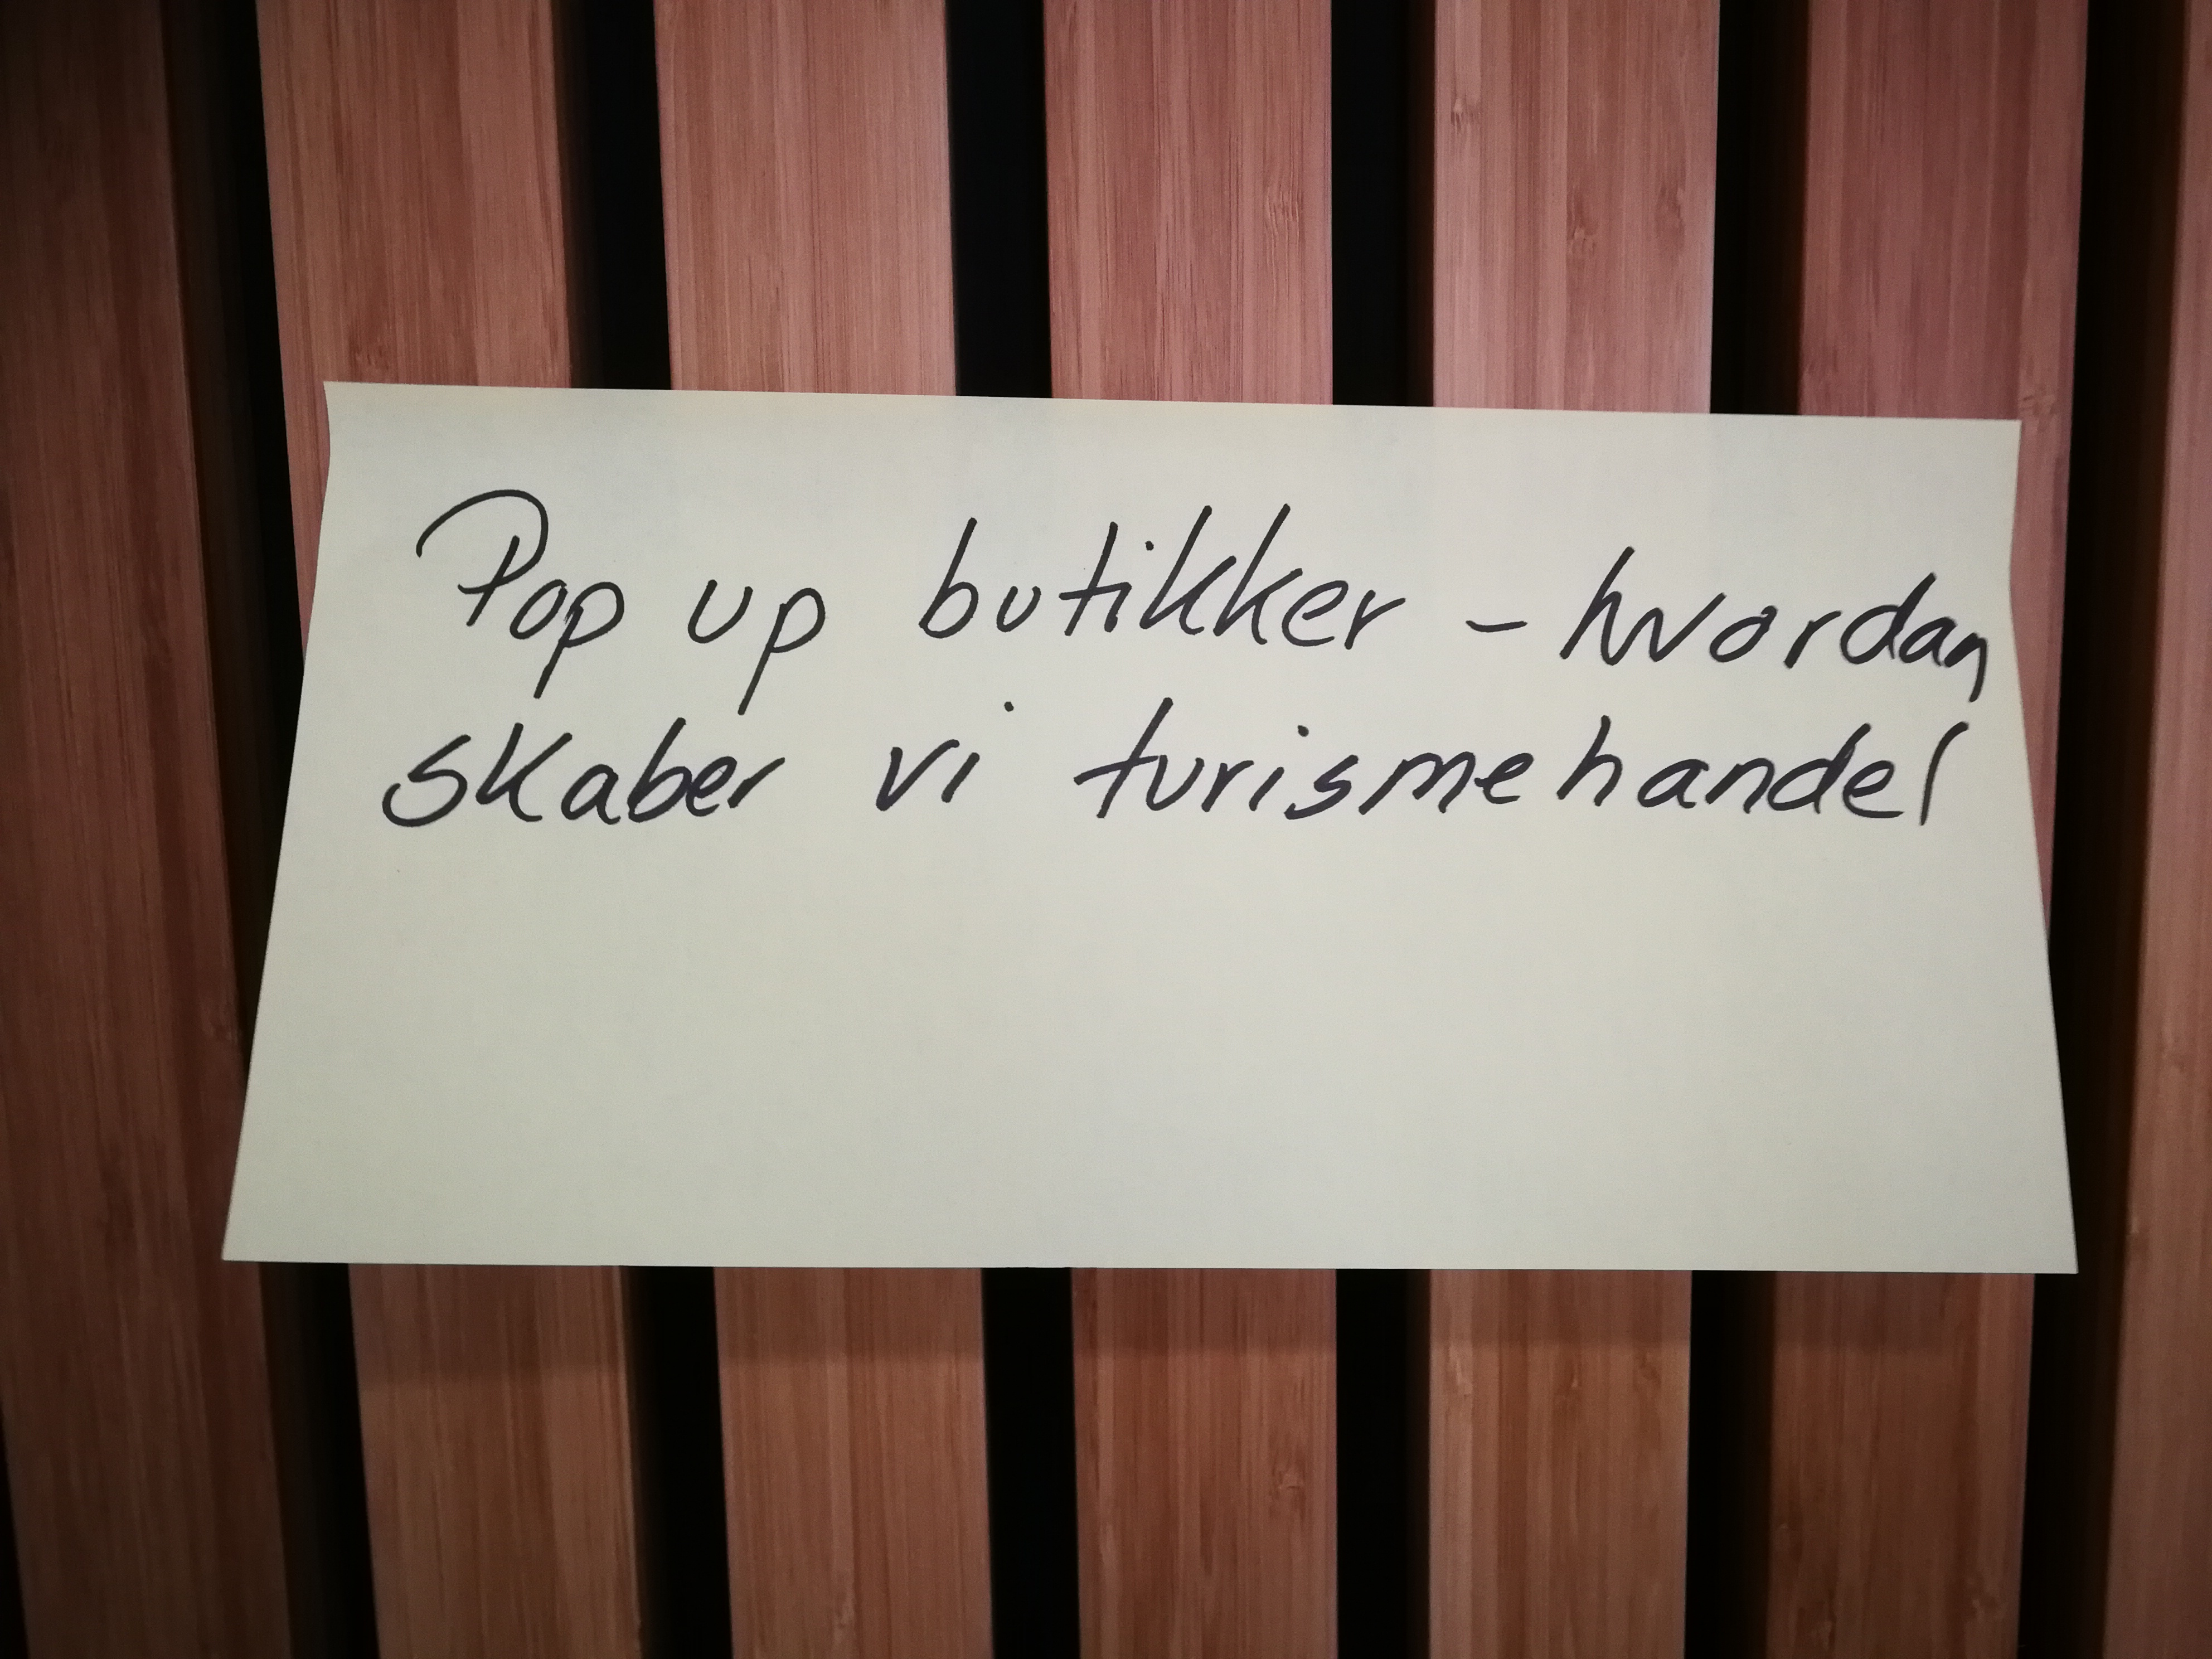 Pop up butikker - hvordan
skaber vi turismehandel